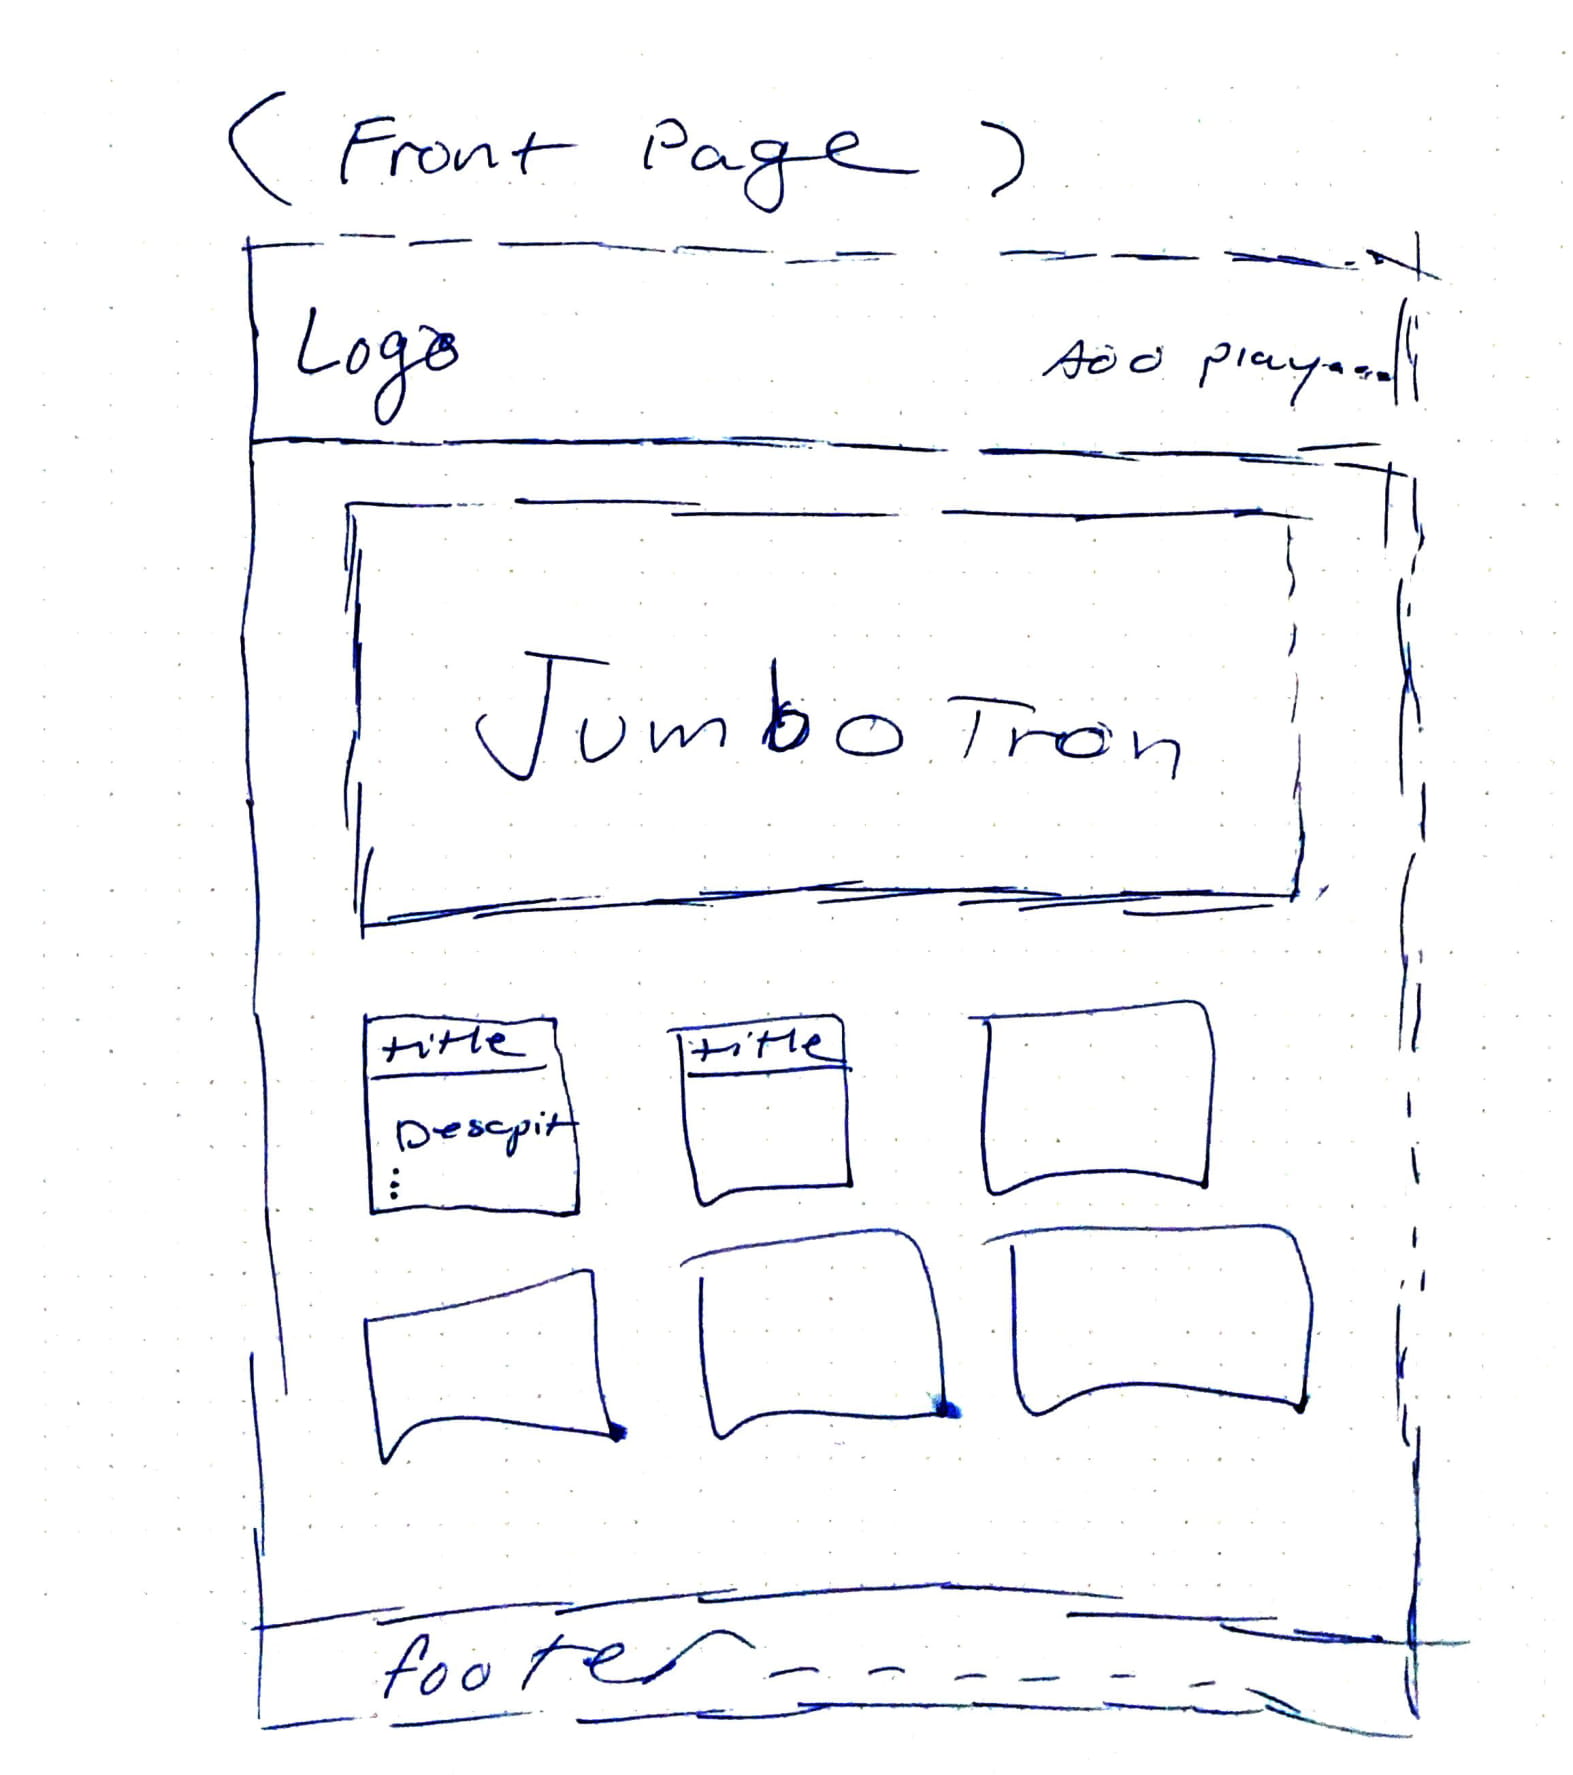 ( Front Page )
Logo
Add play...
JumboTron
title
title
Descpit
⋮
footer - - - - - -